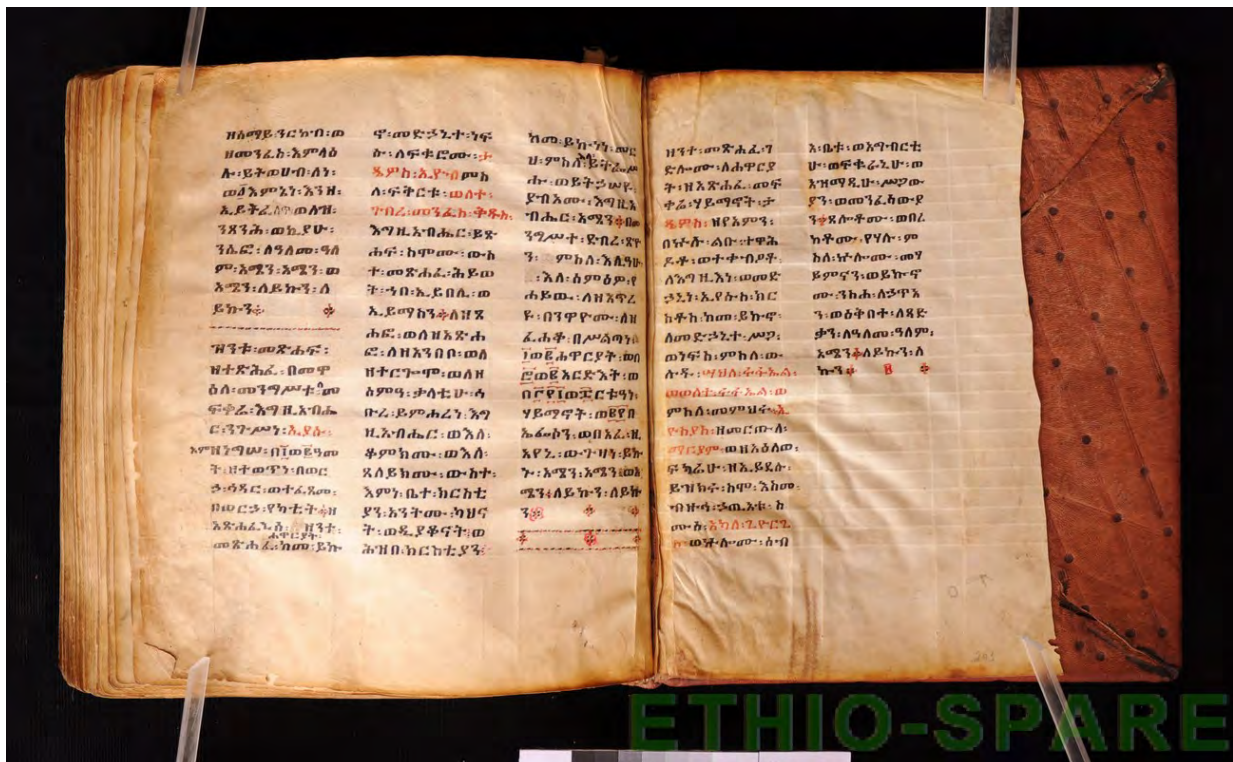 ዘሰማይ፡ንርከብ፡ወ
ዘመንፈስ፡እምላዕ
ሉ፡ይትወሀብ፡ለነ፡
ንጸንሕ፡ወኪያሁ፡
ንሴፎ፡ለዓለመ፡ዓለ
ም፡አሜን፡አሜን፡ወ
አሜን፡ለይኩን፡ለ
ይኩን፨
ዝንቱ፡መጽሐፍ፡
ዘተጽሕፈ፡በመዋ
ዕለ፡መንግሥተ፡መ
ፍቀሬ፡እግዚአብሔ
ር፡ንጉሥነ፡ኢያሱ፡
ት፡ዘተወጥነ፡በወር
ኃ፡ኅዳር፡ወተፈጸመ፡
በወርኃ፡የካቲት፨ዘ
አጽሐፈ፡ ዝንተ፡
ሐዋርያት፡
መጽሐፈ፡ከመ፡ይኩ
ኖ፡መድኃኒተ፡ነፍ
ስ፡ለፍቁሮሙ፡ታ
ዴዎስ፡ኢዮብ፡
ለ፡ፍቅርቱ፡ወለተ፡
ገብረ፡መንፈስ፡ቅዱስ፡
እግዚአብሔር፡ይጽ
ሐፍ፡ስሞሙ፡ውስ
ተ፡መጽሐፈ፡ሕይወ
ት፡ኀበ፡ኢይበሊ፡ወ
ኢይማስን፨ለዘጸ
ሐፎ፡ወለዘአጽሐ
ፎ፡ለዘአንበቦ፡ወለ
ዘተርጐሞ፡ወለዘ
ሰምዓ፡ቃላቲሁ፡ኅ
ቡረ፡ይምሐረነ፡እግ
ዚአብሔር፡ወእለ፡
ቆምክሙ፡ወእለ፡
ጸለይክሙ፡ውስተ፡
እምነ፡ቤተ፡ክርስቲ
ያን፡አንትሙ፡ካህና
ት፡ወዲያቆናት፡ወ
ሕዝበ፡ክርስቲያን፡
ያብአሙ፡እግዚአ
ብሔር፡አሜን፨በመ
ንግሥተ፡ደብረ፡ጽዮ
ን፡ ምስለ፡እሊዓሁ
፡እለ፡ዕምዕም፡የ
ሐይው፡ለዘአጥረ
ዮ፡በንዋዮሙ፡ለዘ
ፈሐቆ፡በሥልጣነ፡
፲ወ፪ሐዋርያት፡ወበ
፸ወ፪አርድእት፡ወ
ሃይማኖት፡ወ፪፻በ
ኤፌሶን፡ወበአፈ፡ዚ
አየኒ፡ውጉዛነ፡ይኩ
ኑ፡አሜን፡አሜን፡ወአ
ሜን፨ለይኩን፡ለይኩ
ን፨
ዝንተ፡መጽሐፈ፡ገ
ድሎሙ፡ለሐዋርያ
ት፡ዘአጽሐፈ፡መፍ
ቀሬ፡ሃይማኖት፡ታ
ዴዎስ፡ዘየአምን፡
በኵሉ፡ልቡ፡ተዋሕ
ዶቶ፡ወተቀብዖቶ፡
ለእግዚእነ፡ወመድ
ኃኒነ፡ኢየሱስ፡ክር
ስቶስ፡ከመ፡ይኩኖ፡
ለመድኃኒተ፡ሥጋ፡
ወነፍስ፡ምስለ፡ው
ሉዱ፡ሣህለ፡ሩፋኤል፡
ወወለተ፡ሩፋኤል፡ወ
ምስለ፡መምህሩ፡ኢ
ዮስያስ፡ዘመርጡለ፡
ማርያም፡ወዘአዕለወ፡
ፍካሬሁ፡ዘኢይደሉ፡
ይዝክሩ፡ስሞ፡እስመ፡
ብዙኅ፡ኃጢአቱ፡ስ
ሙሰ፡አካለ፡ጊዮርጊ
ስ፡ወኵሎሙ፡ሰብ
አ፡ቤቱ፡ወአግብርቲ
ሁ፡ወፍቁራኒሁ፡ወ
አዝማዲሁ፡ሥጋው
ያን፡ወመንፈሳውያ
ን፨ጸሎቶሙ፡ወበረ
ከቶሙ፡የሃሉ፡ም
ስለ፡ኵሎሙ፡መሃ
ይምናን፡ወይኩኖ
ሙ፡ንስሐ፡ለኃጥአ
ን፡ወዕቅበት፡ለጻድ
ቃን፡ለዓለመ፡ዓለም፡
አሜን፨ለይኩን፡ለ
ኩን፨
201
ETHIO-SPARE